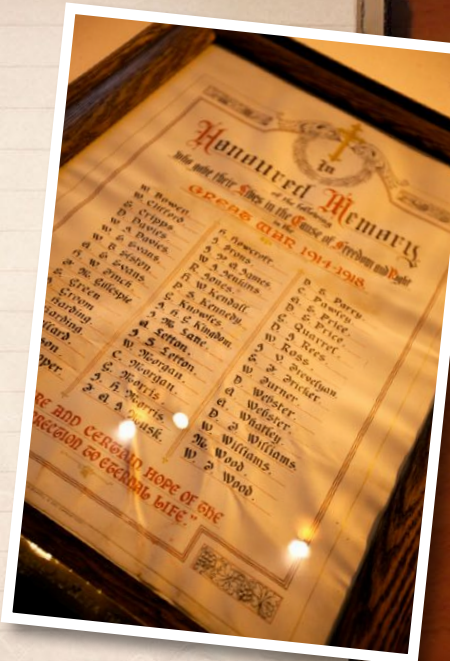 In
Honoured Memory
of the following
Who gave their Lives in the Cause of Freedom and Right
in the
GREAT WAR 1914-1918.
W. Bowen.
W. Clifford.
S. Cripps
D. Davies.
J. Davies.
W. Evans.
G. Evans.
W. Finch.
M. Gillespie.
Green
Groom
Harding
Harding
llard
son.
pper.
F. Howcroft.
J. Irons.
D. J. James.
W. J. Jenkins.
R. Jones.
W. Kendall.
D. S. Kennedy.
E. Knowles
H. E. Kingdom.
M. Lane.
A. Letton.
J. S. Letton.
W. Morgan.
C. Morgan.
E. Morris
A. H. Morris
J. A. A. Musk.
D. S. Parry
D. Pawley.
A. E. Price.
D. G. Price.
D. Quarrel.
D. J. Rees
W. Ross
J. V. Trevelyan.
G. F. Tricker.
W. Turner.
D. Webster.
A. Webster.
G. Whatley
D. J. Williams
W. Williams.
M. Wood
W. J. Wood.
RE AND CERTAIN HOPE OF THE
RRECTION TO ETERNAL LIFE."